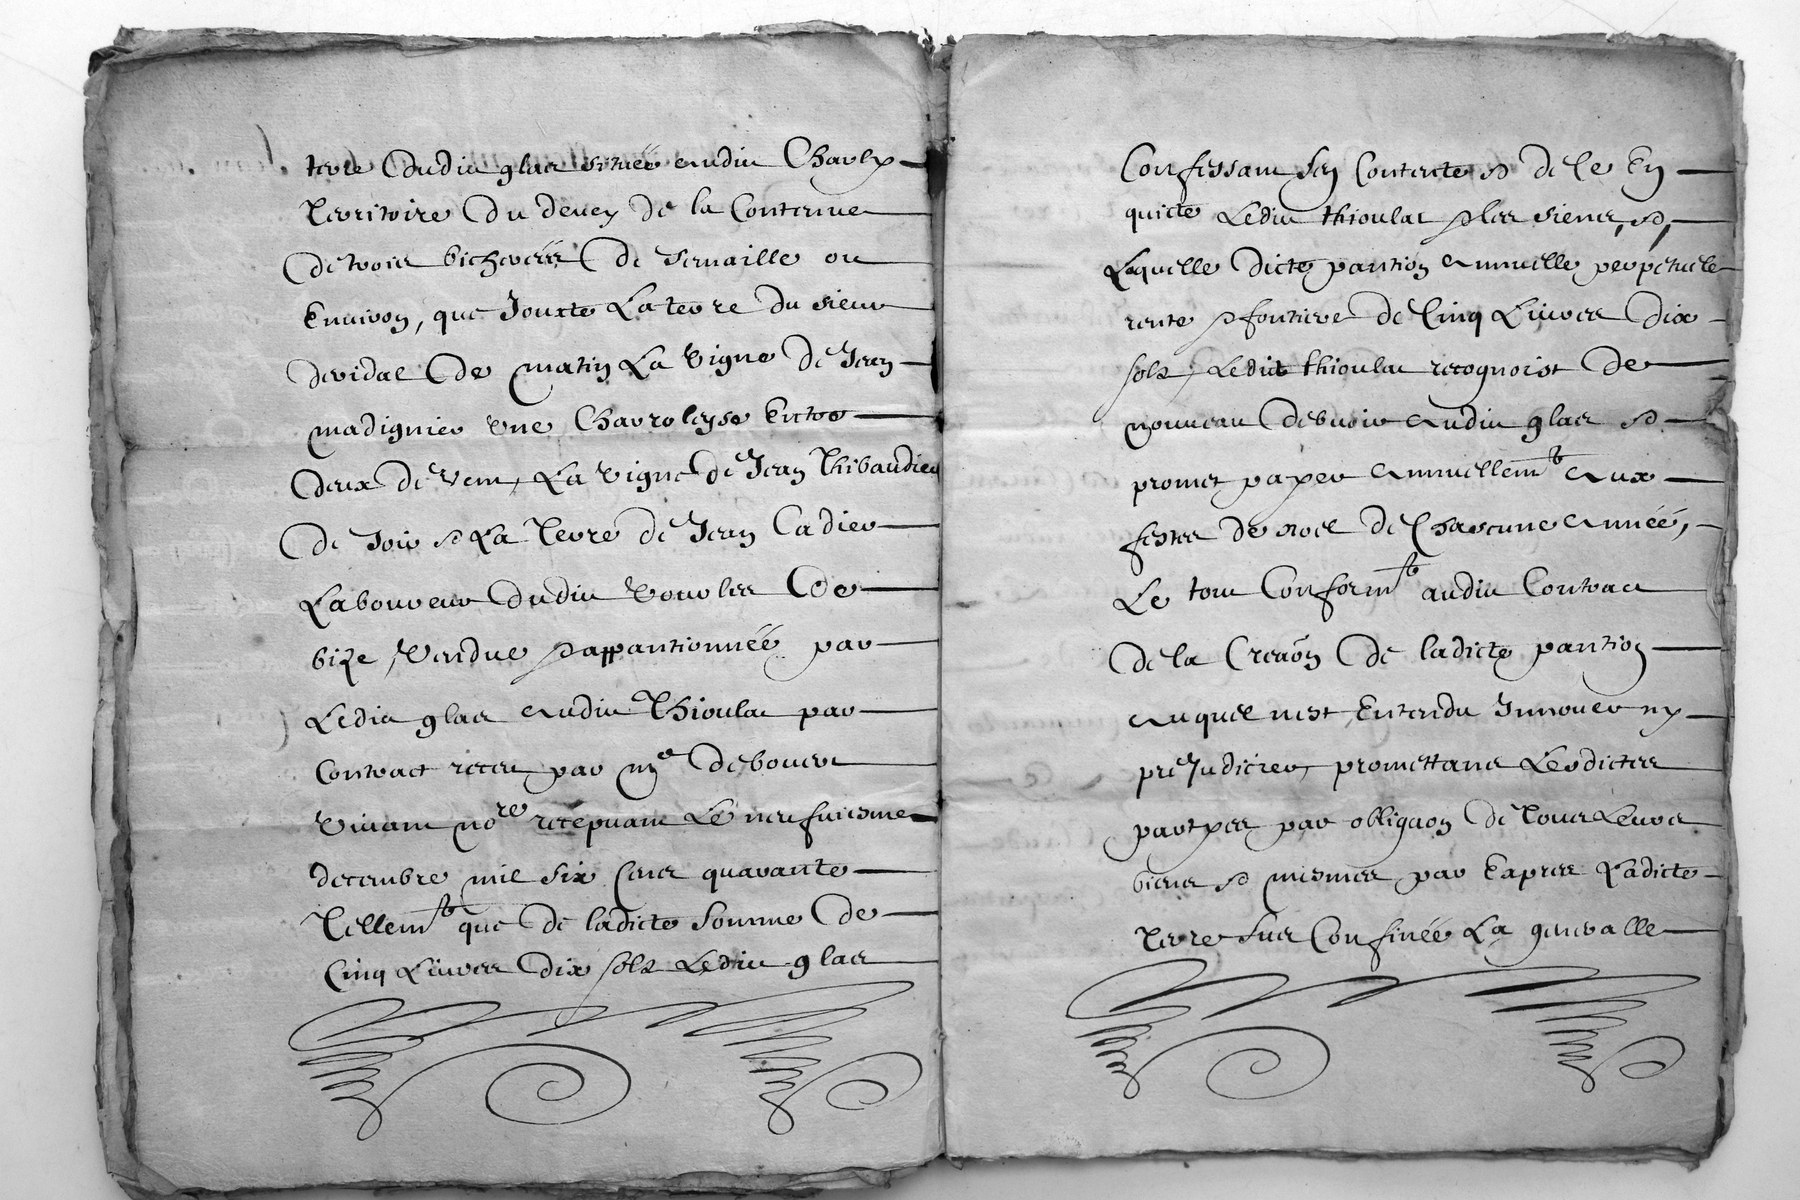 terre dudict glas située audict Chaulx
Territoire du devey de la Contenue
de trois bicherées de semaille ou
Environ, que Jouxte La terre du sieur
devidal de matin La vigne de Jean
madignier une Charroleyse Entre
deux de vent, La vigne de Jean Thibaudier
de soir & La Terre de Jean Cadier
Laboureur dudict de
bize, Vendue & appantionnée par
Ledict glas audict Thioulat par
Contract receu par me deboues
vivant nore recepvant Le neufuiesme
decembre mil six cens quarante
Tellemt que de ladicte somme de
Cinq Liuvres dix solz Ledict glas
Confessant sen Contente & de Ce En
quicte Ledict thioulat & les siens, &
Laquelle dicte pantion annuelle perpetuele
rente & fontiere de Cinq Liuvres dix
solz, Ledict thioulat recognoist de
nouveau debvoir audict glas &
promet payer annuellemt aux
festes de noel de Chascune année,
Le tout Conformt audict Contract
de la Creaon de ladicte pantion
auquel nest Entendu Innover ny
preJudicier, promettans Lesdictes
partyes par obligaon de Tous Leurs
biens & mesmes par Expres Ladicte
Terre sus Confinée La generalle